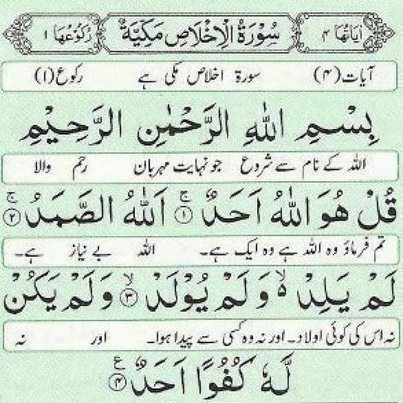 اٰيَاتُهَا ۴ سُوْرَةُ الْاِخْلَاصِ مَكِّيَّةٌ رُكُوْعُهَا ۱
آیات (۴) سورۃ اخلاص مکی ہے رکوع (۱)
بِسْمِ اللهِ الرَّحْمٰنِ الرَّحِيْمِ
اللہ کے نام سے شروع جو نہایت مہربان رحم والا
قُلْ هُوَ اللهُ اَحَدٌ ۚ ۱ اَللهُ الصَّمَدُ ۚ ۲
تم فرماؤ وہ اللہ ہے وہ ایک ہے۔ اللہ بے نیاز ہے۔
لَمْ يَلِدْ ۙ وَلَمْ يُوْلَدْ ۙ ۳ وَلَمْ يَكُنْ
نہ اس کی کوئی اولاد۔ اور نہ وہ کسی سے پیدا ہوا۔ اور نہ
لَّهٗ كُفُوًا اَحَدٌ ۴ ع